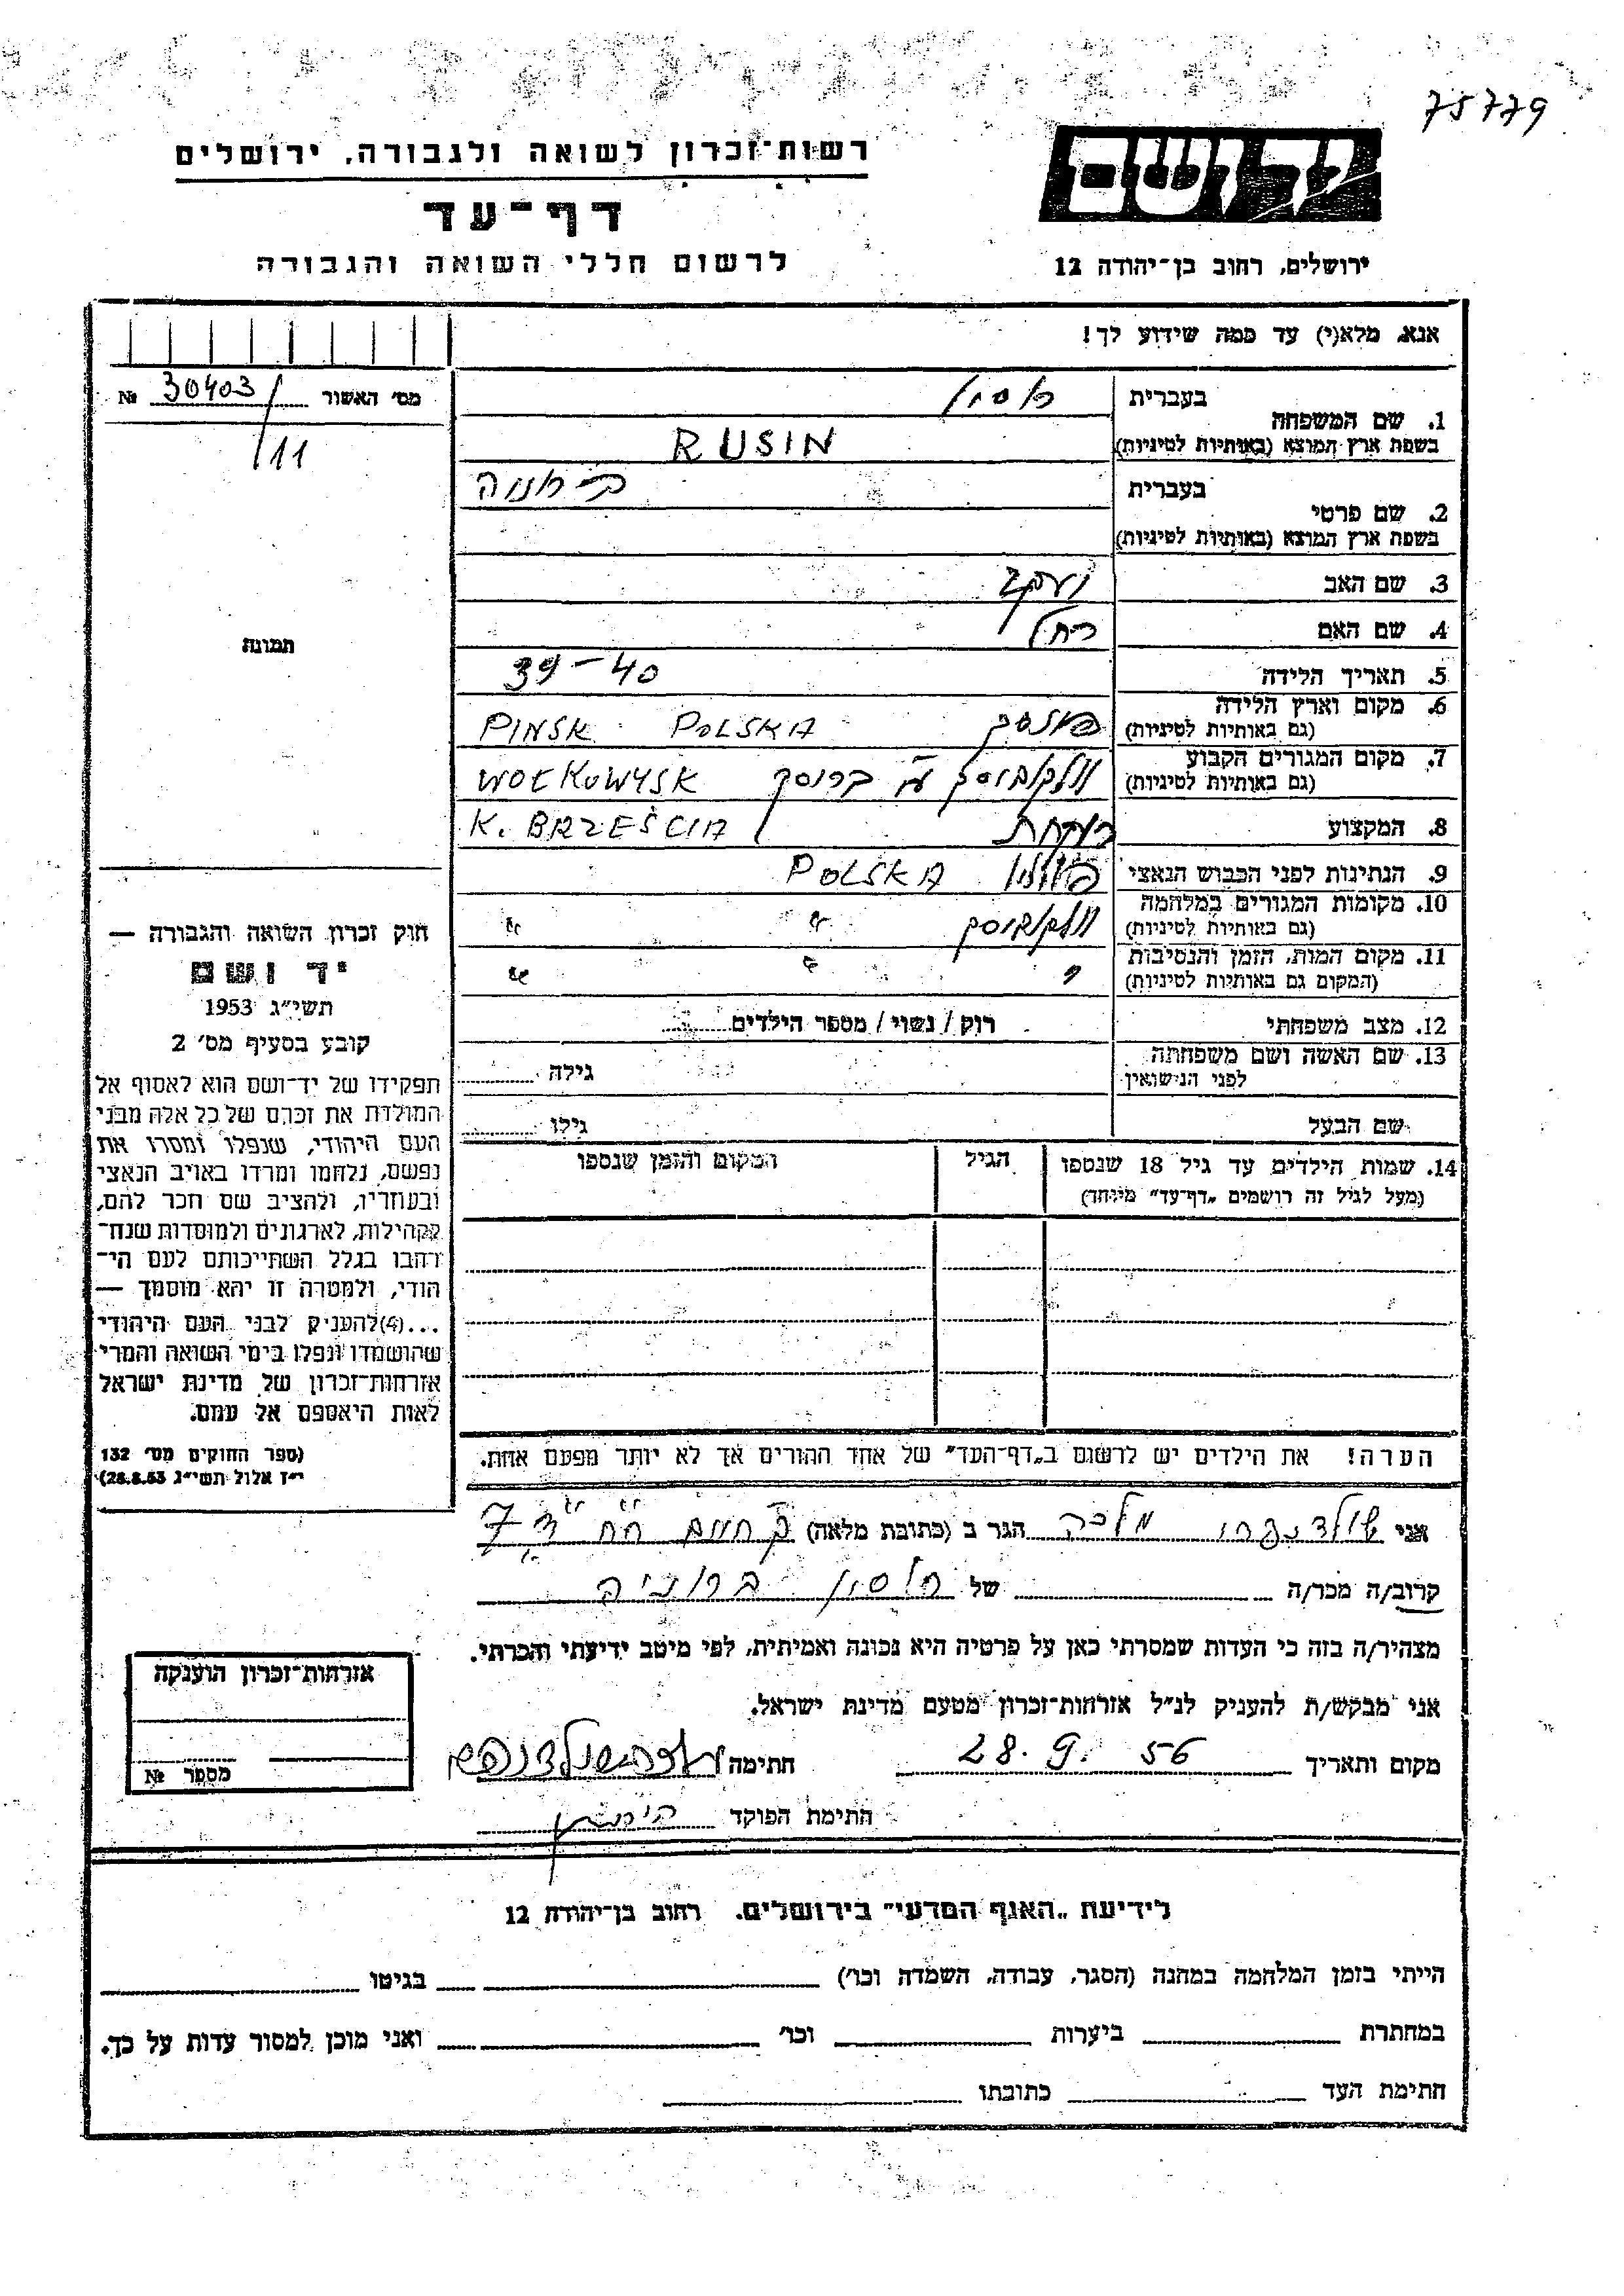 75779
יד ושם
רשות־זכרון לשואה ולגבורה, ירושלים
דף־עד
לרשום חללי השואה והגבורה
ירושלים, רחוב בן־יהודה 12
אנא, מלא(י) עד כמה שידוע לך!
מס׳ האשור 30403/11 №
1. שם המשפחה
בעברית רוסין
בשפת ארץ המוצא (באותיות לטיניות) RUSIN
2. שם פרטי
בעברית
בשפת ארץ המוצא (באותיות לטיניות)
3. שם האב יעקב
4. שם האם רחל
5. תאריך הלידה 39-40
6. מקום וארץ הלידה
(גם באותיות לטיניות) פינסק PINSK POLSKA
7. מקום המגורים הקבוע
(גם באותיות לטיניות) WOŁKOWYSK
K. BRZEŚCIA
8. המקצוע רוקחת
9. הנתינות לפני הכבוש הנאצי פולין POLSKA
10. מקומות המגורים במלחמה
(גם באותיות לטיניות) וולקוביסק " "
11. מקום המות, הזמן והנסיבות
(המקום גם באותיות לטיניות) " " "
12. מצב משפחתי רוק / נשוי / מספר הילדים
13. שם האשה ושם משפחתה
לפני הנישואין גילה
שם הבעל גילו
14. שמות הילדים עד גיל 18 שנספו
(מעל לגיל זה רושמים „דף־עד" מיוחד)
הגיל
המקום והזמן שנספו
הערה! את הילדים יש לרשום ב„דף־העד" של אחד ההורים אך לא יותר מפעם אחת.
תמונה
חוק זכרון השואה והגבורה —
יד ושם
תשי״ג 1953
קובע בסעיף מס׳ 2
תפקידו של יד־ושם הוא לאסוף אל
המולדת את זכרם של כל אלה מבני
העם היהודי, שנפלו ומסרו את
נפשם, נלחמו ומרדו באויב הנאצי
ובעוזריו, ולהציב שם וזכר להם,
לקהילות, לארגונים ולמוסדות שנח־
רבו בגלל השתייכותם לעם הי־
הודי, ולמטרה זו יהא מוסמך —
...(4)להעניק לבני העם היהודי
שהושמדו ונפלו בימי השואה והמרי
אזרחות־זכרון של מדינת ישראל
לאות היאספם אל עמם.
(ספר החוקים מס׳ 132
י״ז אלול תשי״ג 28.8.53)
אני מלכה הגר ב (כתובת מלאה)
קרוב/ה מכר/ה של רוסין ברוניה
מצהיר/ה בזה כי העדות שמסרתי כאן על פרטיה היא נכונה ואמיתית, לפי מיטב ידיעתי והכרתי.
אני מבקש/ת להעניק לנ״ל אזרחות־זכרון מטעם מדינת ישראל.
מקום ותאריך 28. 9. 56 חתימה
חתימת הפוקד
אזרחות־זכרון הוענקה
מספר №
לידיעת „האגף המדעי" בירושלים. רחוב בן־יהודה 12
הייתי בזמן המלחמה במחנה (הסגר, עבודה, השמדה וכו׳) בגיטו
במחתרת ביערות וכו׳ ואני מוכן למסור עדות על כך.
חתימת העד כתובתו